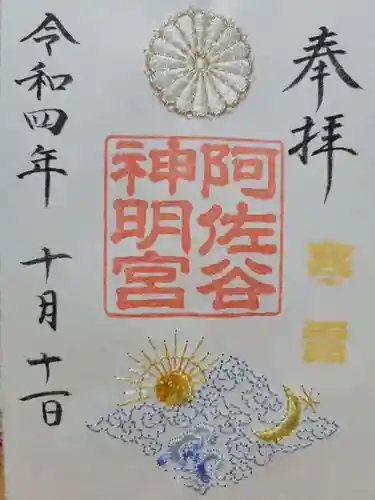 奉拝
寒露
阿佐谷
神明宮
令和四年 十月十一日